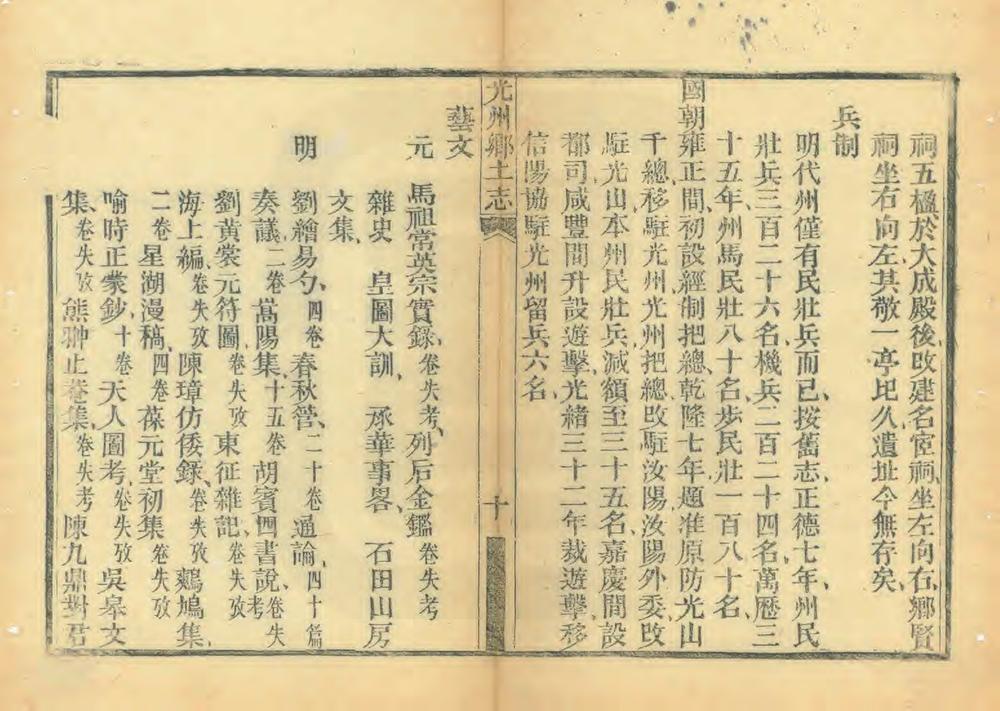 祠五楹於大成殿後改建名宦祠坐左向右鄉賢
祠坐右向左其敬一亭圮久遺址今無存矣
兵制
明代州僅有民壯兵而已按舊志正德七年州民
壯兵三百二十六名機兵二百二十四名萬歷三
十五年州馬民壯八十名步民壯一百八十名
國朝雍正間初設經制把總乾隆七年題准原防光山
千總移駐光州光州把總改駐汝陽汝陽外委改
駐光山本州民壯兵減額至三十五名嘉慶間設
都司咸豐間升設遊擊光緒三十二年裁遊擊移
信陽協駐光州留兵六名
光州鄉土志 十
藝文
元 馬祖常英宗實錄卷失考列后金鑑卷失考
雜史 皇圖大訓 承華事畧 石田山房
文集
明 劉繪易勺四卷 春秋管二十卷 通論四十篇
奏議二卷 嵩陽集十五卷 胡賓四書說卷失考
劉黃裳元符圖卷失攷 東征雜記卷失攷
海上編卷失攷 陳璋仿倭錄卷失攷 鷞鳩集
二卷 星湖漫稿四卷 葆元堂初集卷失攷
喻時正蒙鈔十卷 天人圖考卷失攷 吳皋文
集卷失攷 熊翀止菴集卷失考 陳九鼎對君